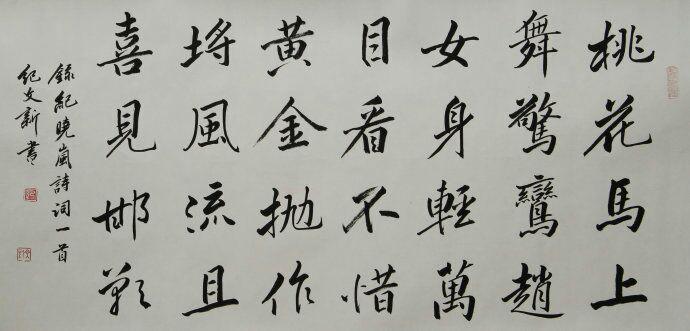 桃花馬上
舞驚鸞趙
女身輕萬
目看不惜
黃金拋作
埓風流且
喜見邯鄲
錄紀曉嵐詩词一首
纪文新書